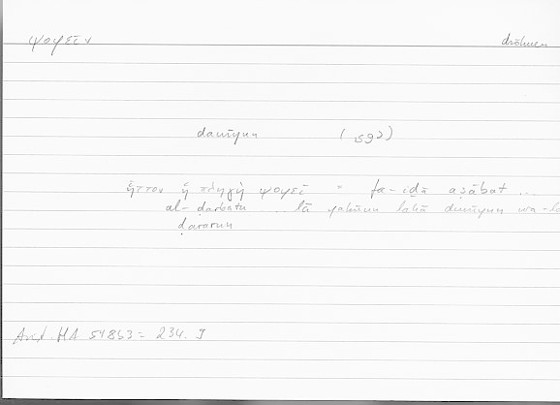 ψοφεῖν dröhnen
dawīyun (sg?)
ἧττον ἡ πληγὴ ψοφεῖ = fa-iḏā aṣābat ...
al-ḍarbatu .. lā yakūnu lahā dawīyun wa-lā
ḍararun
Arist. HA 548b3 = 234.9